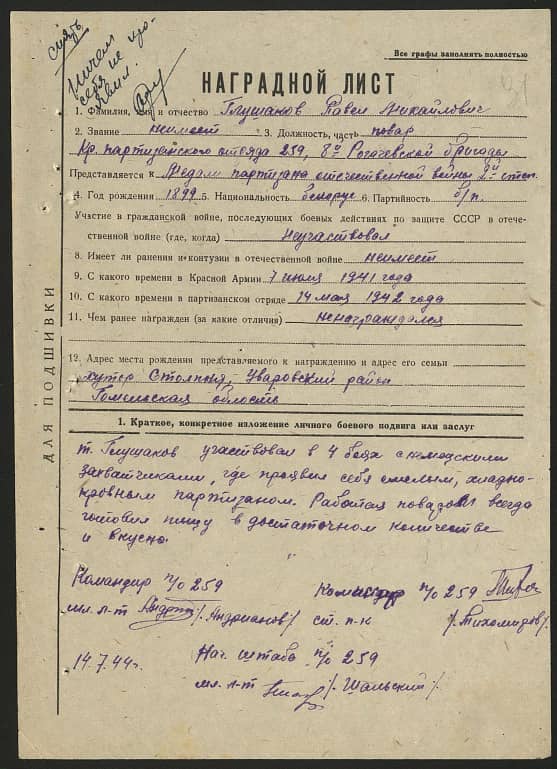 снять
ничем
себя не про-
явил.
Все графы заполнять полностью
НАГРАДНОЙ ЛИСТ
1. Фамилия, имя и отчество Глушаков Павел Михайлович
2. Звание неимеет 3. Должность, часть повар
партизанского отряда 259, 8й Рогачевской бригады
Представляется к Медали партизана отечественной войны 2й степ.
4. Год рождения 1899 5. Национальность белорус 6. Партийность б/п.
Участие в гражданской войне, последующих боевых действиях по защите СССР в отече-
ственной войне (где, когда) Неучаствовал
8. Имеет ли ранения и контузии в отечественной войне неимеет
9. С какого времени в Красной Армии 7 июля 1941 года
10. С какого времени в партизанском отряде 14 мая 1942 года
11. Чем ранее награжден (за какие отличия) ненаграждался
12. Адрес места рождения представляемого к награждению и адрес его семьи
хутор Столпня, Уваровский район
Гомельская область
ДЛЯ ПОДШИВКИ
1. Краткое, конкретное изложение личного боевого подвига или заслуг
т. Глушаков участвовал в 4 боях с немецкими
захватчиками, где проявил себя смелым, хладно-
кровным партизаном. Работая поваром всегда
готовил пищу в достаточном количестве
и вкусно.
Командир п/о 259
мл. л-т /. Андрианов /
Командир п/о 259
ст. п-к /. Тихомиров /
14.7.44г.
Нач. штаба п/о 259
мл. л-т /. Шальский /.